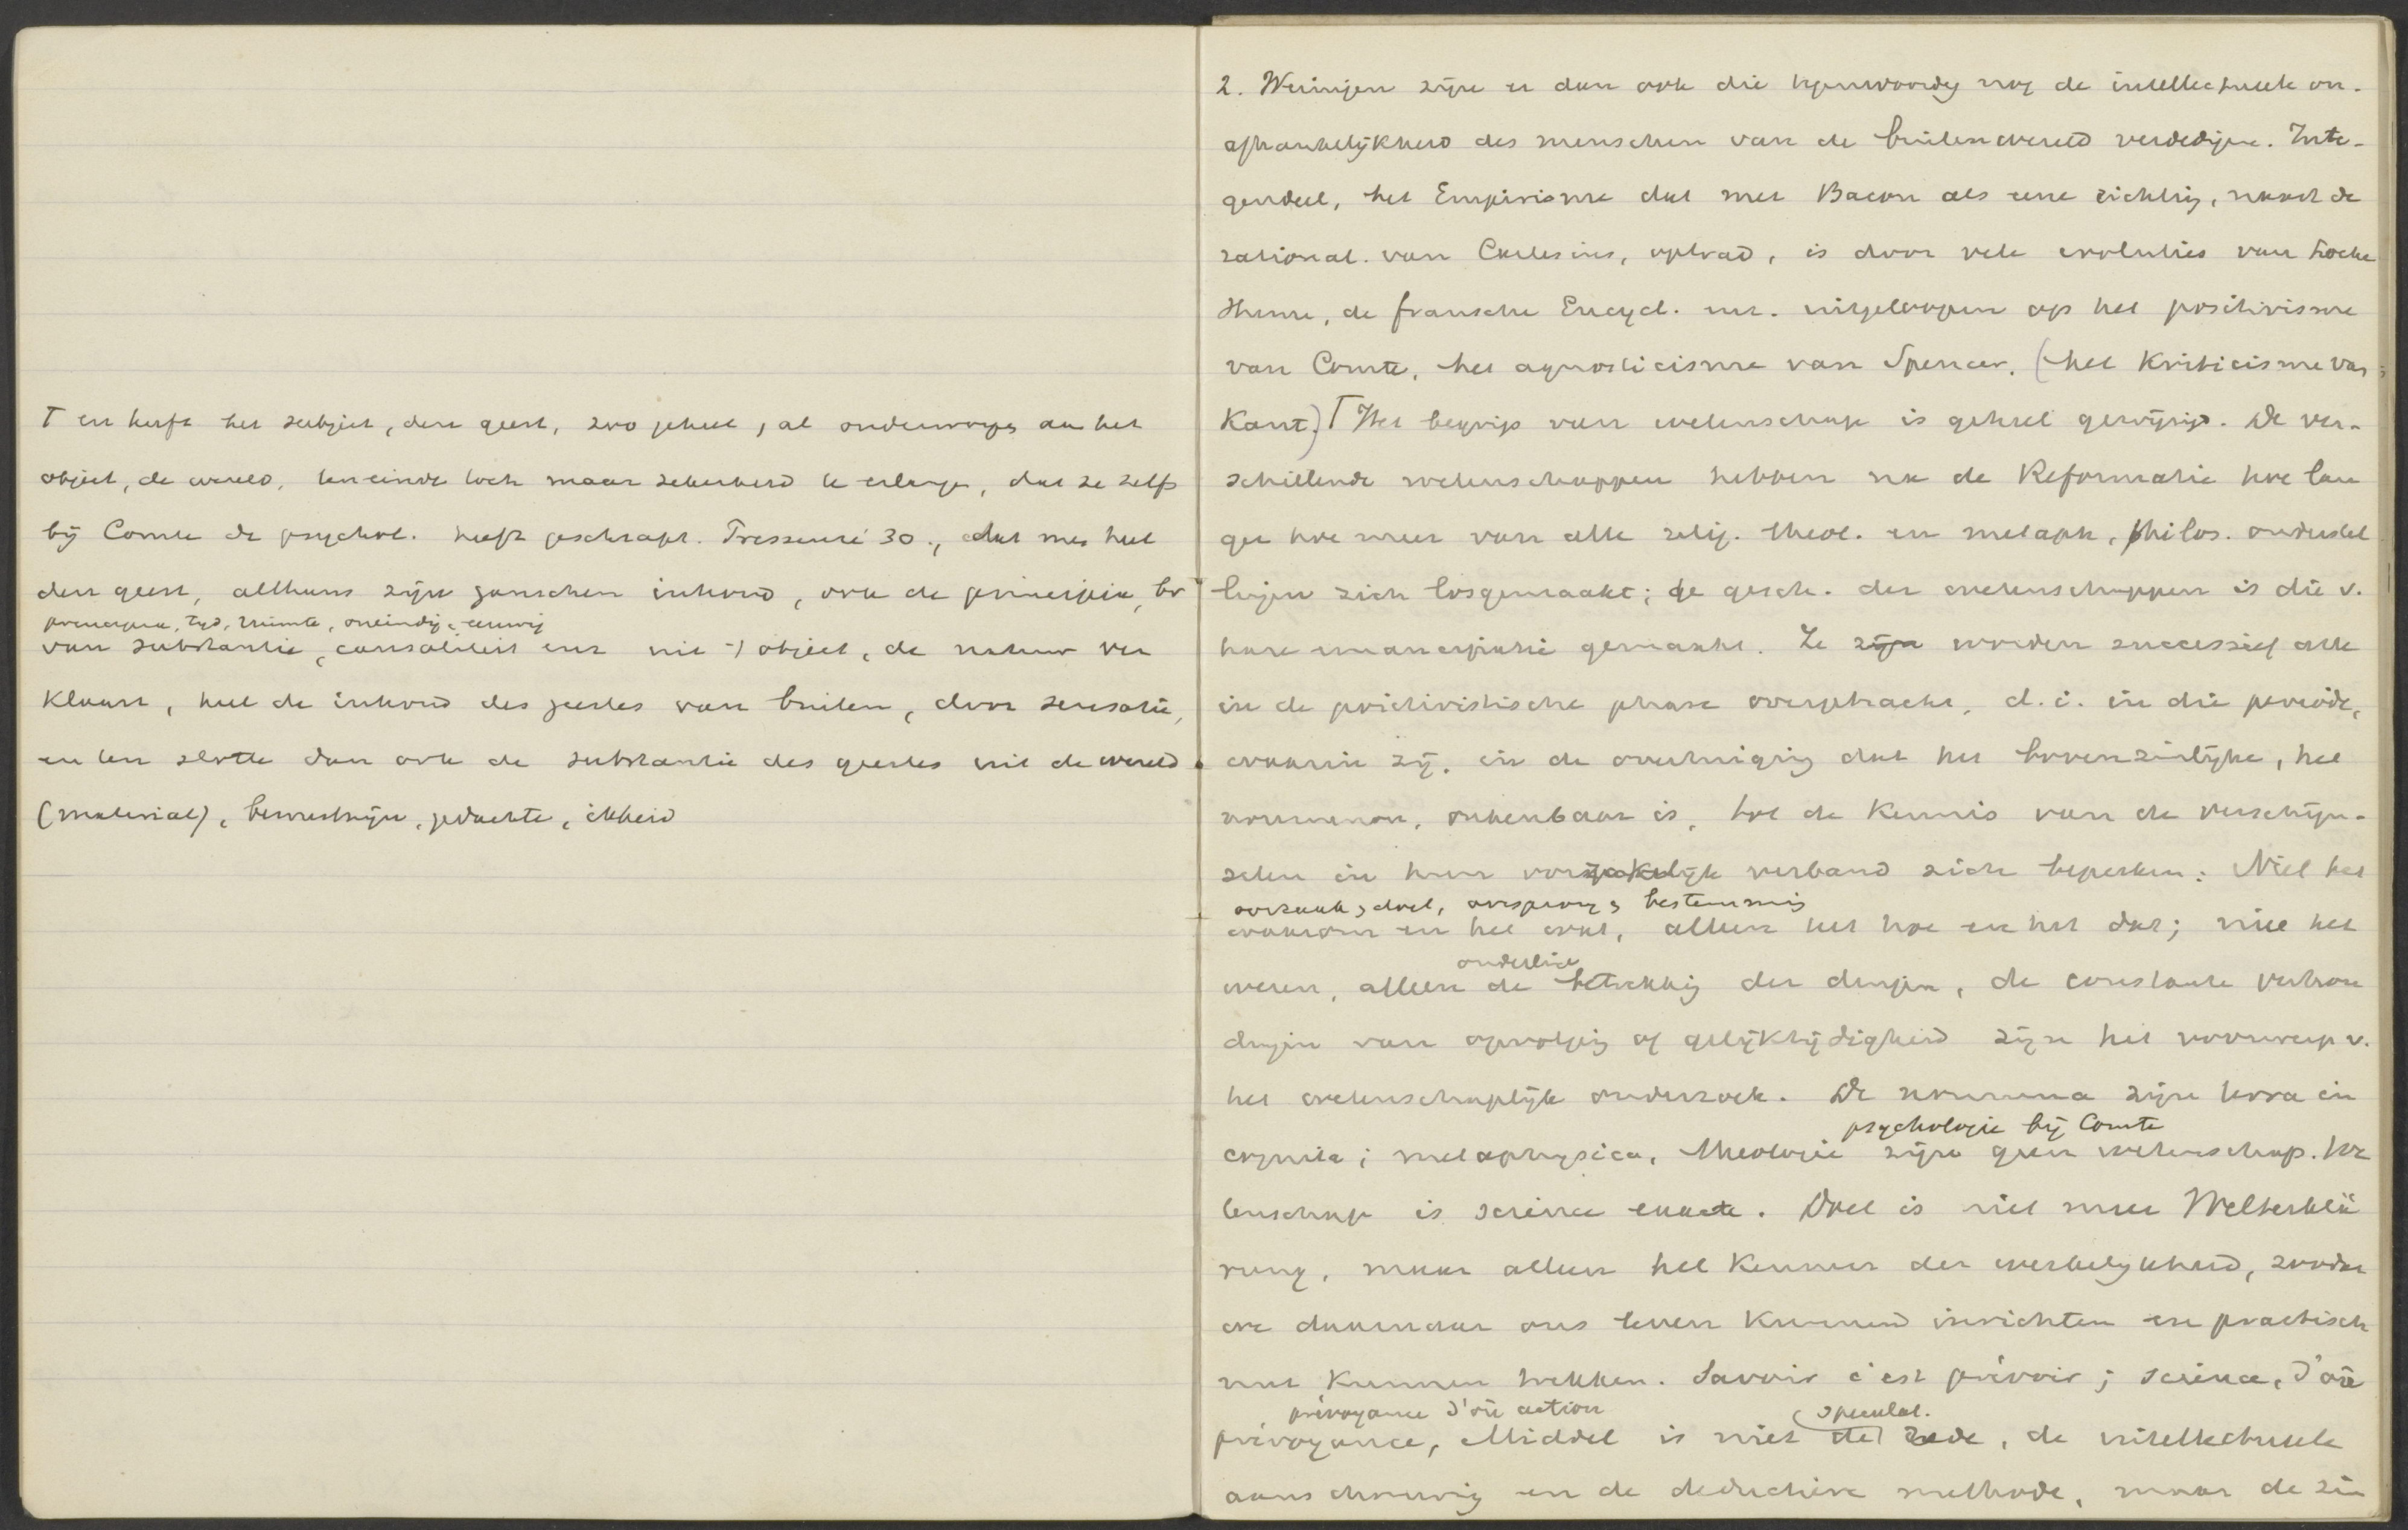 Γ en heeft het subject, den geest, zoo geheel, al onderworpen aan het
object, de wereld, teneinde toch maar zekerheid te erlangen, dat ze zelfs
bij Comte de psychol. heeft geschrapt. Pressensé 30., dat men heel
den geest, althans zijn ganschen inhoud, ook de principia, bv
principia, tijd, ruimte, oneindig, eeuwig
van substantie, causaliteit enz uit 't object, de natuur ver
klaart, heel de inhoud des geestes van buiten, door sensatie,
en ten slotte dan ook de substantie des geestes uit de wereld
(material), bewustzijn, gedachte, ikheid
2. Weinigen zijn er dan ook die tegenwoordig nog de intellectueele on-
afhankelijkheid des menschen van de buitenwereld verdedigen. Inte-
gendeel, het Empirisme dat met Bacon als eene richting, naast de
rational. van Cartesius, optrad, is door vele evoluties van Locke
Hume, de fransche Encycl. enz. uitgeloopen op het positivisme
van Comte, het agnosticisme van Spencer, (het Kriticisme van
Kant.) Γ Het begrip van wetenschap is geheel gewijzigd. De ver-
schillende wetenschappen hebben na de Reformatie hoe lan
ger hoe meer van alle relig. theol. en metaph, philos. onderstel
lingen zich losgemaakt; de gesch. der wetenschappen is die v.
hare emancipatie gemaakt. Ze zijn worden successief alle
in de positivistische phase overgebracht, d.i. in die periode,
waarin zij, in de overtuiging dat het bovenzinlijke, het
noumenon, onkenbaar is, tot de kennis van de verschijn-
selen in hun oorzakelijk verband zich beperken: Niet het
oorzaak, doel, oorsprong, bestemming
waarom en het wat, alleen het hoe en het dat; niet het
onderlinge
wezen, alleen de betrekking der dingen, de constante verhou
dingen van opvolging of gelijktijdigheid zijn het voorwerp v.
het wetenschaplijk onderzoek. De noumena zijn terra in
psychologie bij Comte
cognita; metaphysica, theologie zijn geen wetenschap. We
tenschap is science exacte. Doel is niet meer Welterklä
rung, maar alleen het kennen der werkelijkheid, zoodat
we daarnaar ons leven kunnen inrichten en practisch
nut kunnen trekken. Savoir c'est prévoir; science, d'où
prévoyance d'où action
(speculat.
prévoyance, Middel is niet de rede, de intellectueele
aanschouwing en de deductieve methode, maar de zin